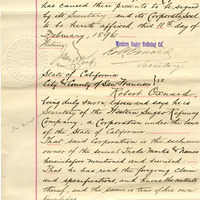 has caused these presents to be signed
by its Secretary and its Corporate Seal
to be hereto affixed, this 11th day of
February, 1896.
Western Sugar Refining Co.
Secretary
State of California
City & County of San Francisco } ss
Robert Oxnard
being duly sworn, deposes and says he is
Secretary of the Western Sugar Refining
Company, a Corporation under the laws
of the State of California
That said Corporation is the
owner of the Trade Mark
hereinbefore mentioned and
That he has read the foregoing claim
and specifications and knows the contents
thereof, and the same is true of his own
knowledge